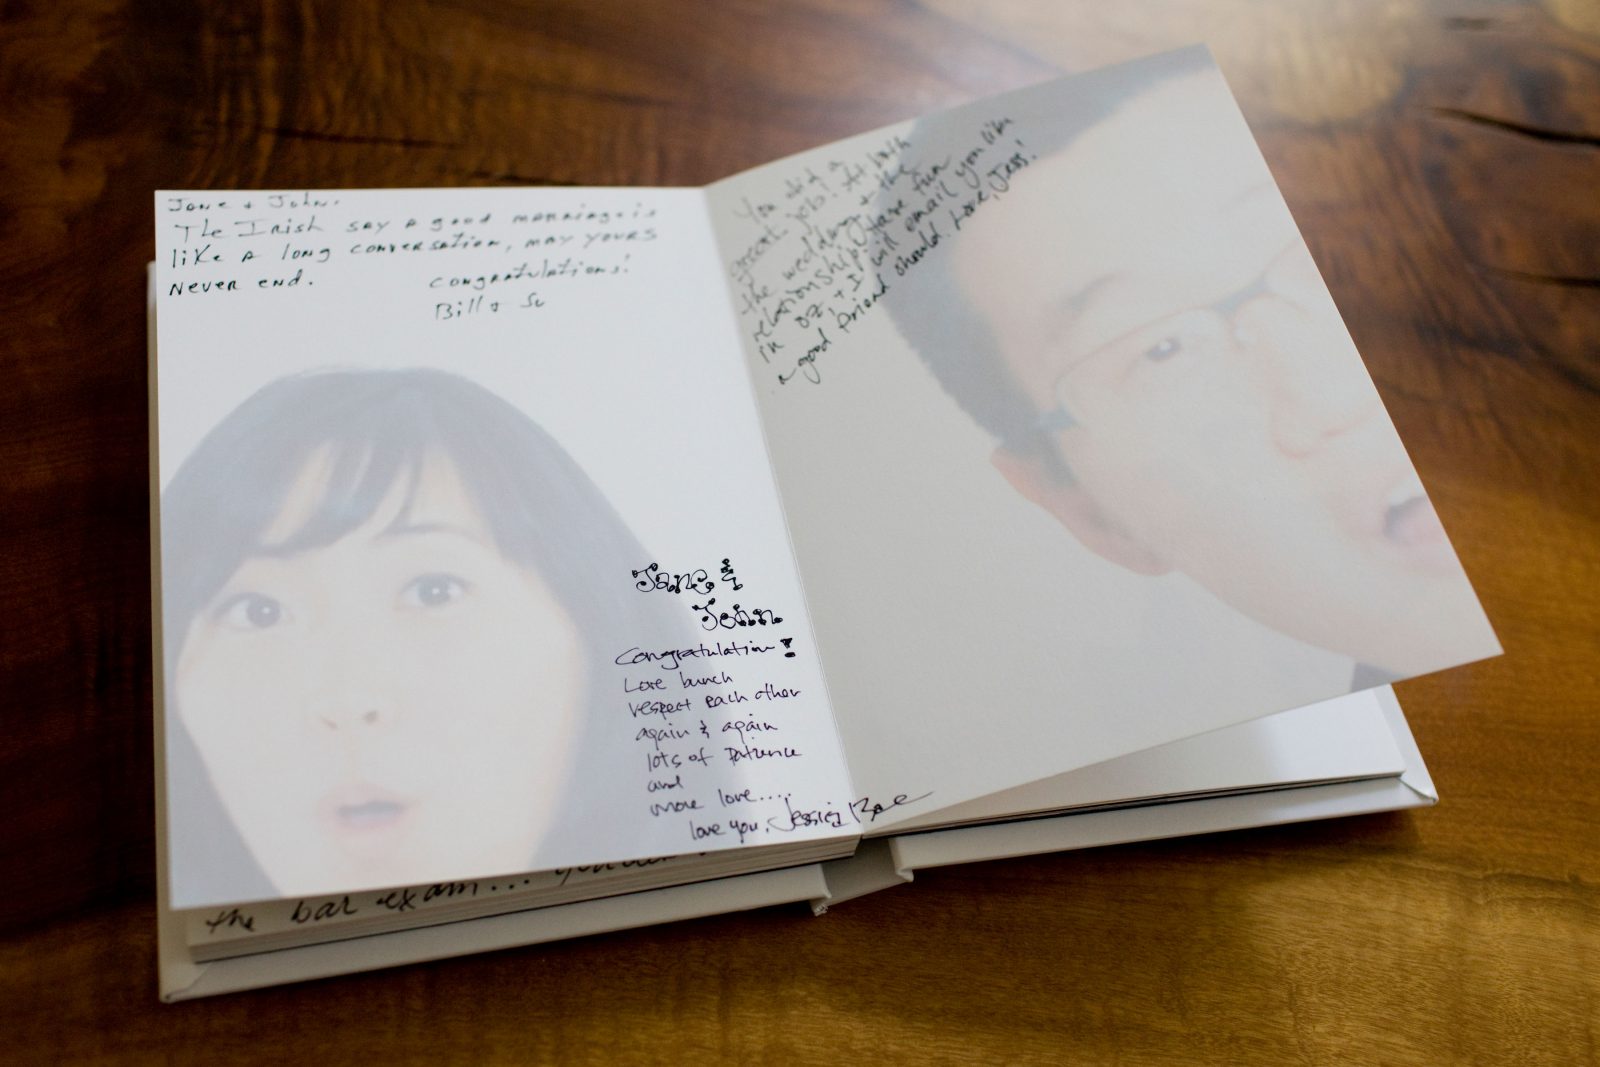 Jane & John,
The Irish say a good marriage is
like a long conversation, may yours
Never end.
Congratulations!
Bill & Su
Jane &
John
Congratulation!
Love bunch
respect each other
again & again
lots of Patience
and
more love.....
love you, Jessica Bae
the bar exam...
You did a
great job! At both
the wedding & the
relationship. Have fun
in OZ, & I will email you like
a good friend should. Love, Jess!